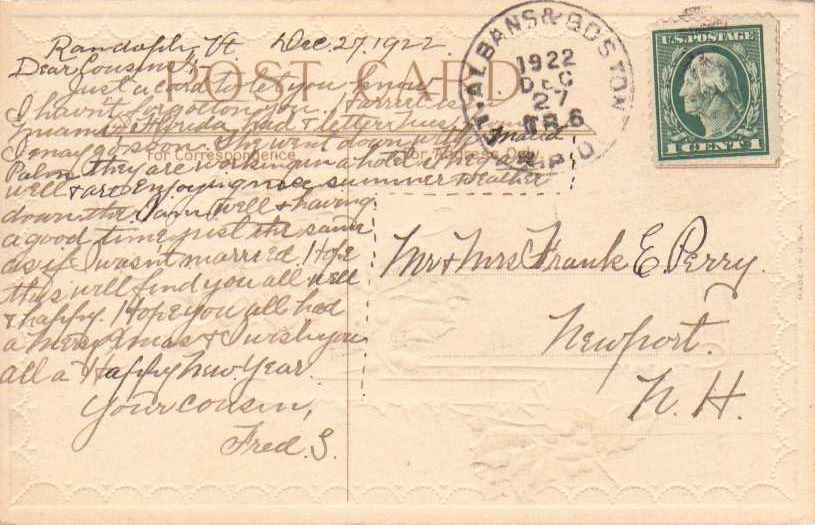 Randolph, Vt Dec. 27, 1922.
Dear Cousins,
POST CARD
Just a card to let you know
I havn't forgotton you. Harriet is in
Miami Florida, had a letter Tues from
I may go soon. She went down with a maid
For Correspondence
Palm they are working in a hotel
well & are enjoying nice summer weather
down there. I am well & having
a good time just the same
as if I wasn't married. Hope
this will find you all well
& happy. Hope you all had
a merry Xmas & I wish you
all a Happy New Year
Your cousin,
Fred. S.
ST. ALBANS & BOSTON
1922
DEC
27
R.P.O.
U.S. POSTAGE
1 CENT 1
Mr & Mrs Frank E. Perry.
Newport.
N. H.
MADE IN U.S.A.